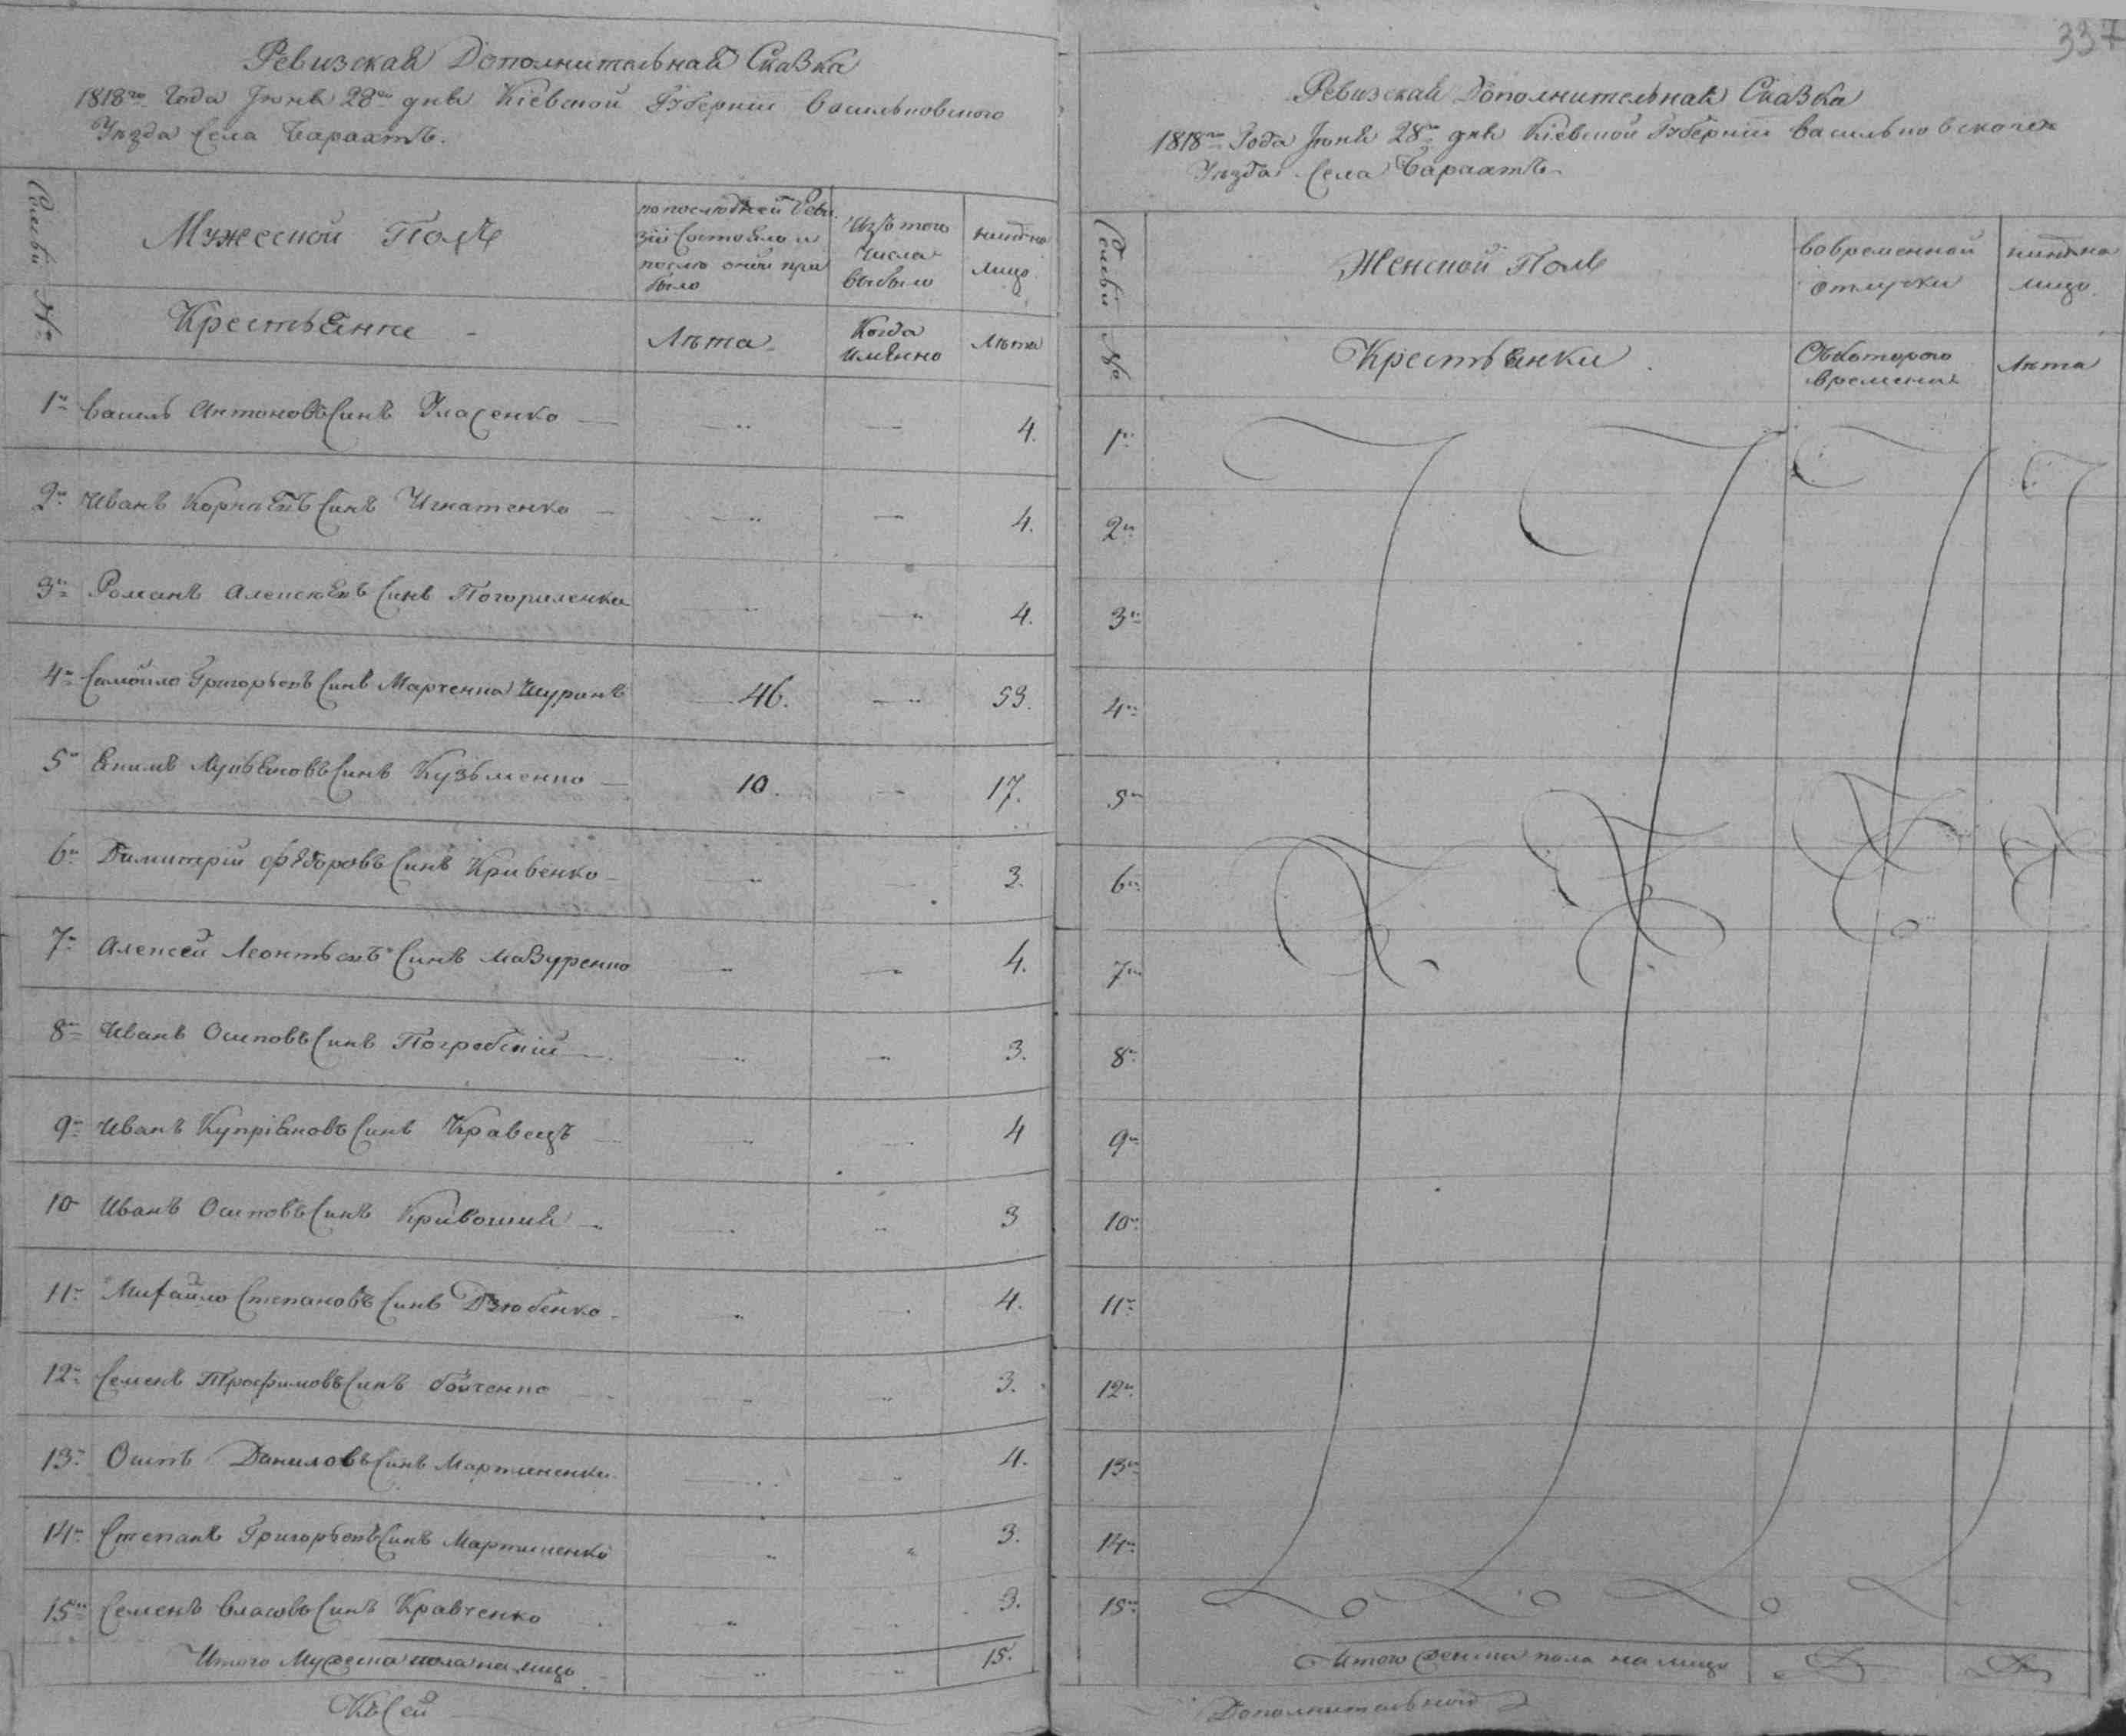 Ревизская Дополнительная Сказка
1818го Года Июня 28го дня Кіевской Губерніи Васильковского
Уезда Села Барахтъ.
Семьи №
Мужеской Полъ
по последней Реви
зіи Состояло и
после оной при
было
Изъ того
числа
выбыло
ныне на
лицо
Крестьяне
Лета
Когда
имянно
Лета
1й Василь Антоновъ Синъ Уласенко 4.
2й Иванъ Корнеевъ Синъ Игнатенко 4.
3й Романъ Алексеевъ Синъ Погориленко 4.
4й Самойло Григорьевъ Синъ Марченка Шуринъ 46. 53.
5й Екимъ Лукьяновъ Синъ Кузьменко 10. 17.
6й Димитрій Федоровъ Синъ Кривенко 3.
7й Алексей Леонтьевъ Синъ Мазуренко 4.
8й Иванъ Осиповъ Синъ Погребскій 3.
9й Иванъ Купріяновъ Синъ Кравецъ 4
10 Иванъ Осиповъ Синъ Кривошия 3
11й Михайло Степановъ Синъ Дзюбенко 4.
12й Семенъ Трофимовъ Синъ Бойченко 3.
13й Осипъ Даниловъ Синъ Мартиненко 4.
14й Степанъ Григорьевъ Синъ Мартиненко 3.
15й Семенъ Власовъ Синъ Кравченко 3.
Итого Мужеска пола на лицо 15.
Къ Сей
337
Ревизская Дополнительная Сказка
1818го Года Июня 28го дня Кіевской Губерніи Васильковского
Уезда Села Барахтъ
Семьи №
Женской Полъ
во временной
отлучки
ныне на
лицо
Крестьянки
Съ котораго
времени
Лета
1й
2й
3й
4й
5й
6й
7й
8й
9й
10й
11й
12й
13й
14й
15й
Итого женска пола на лицо
Дополнительной